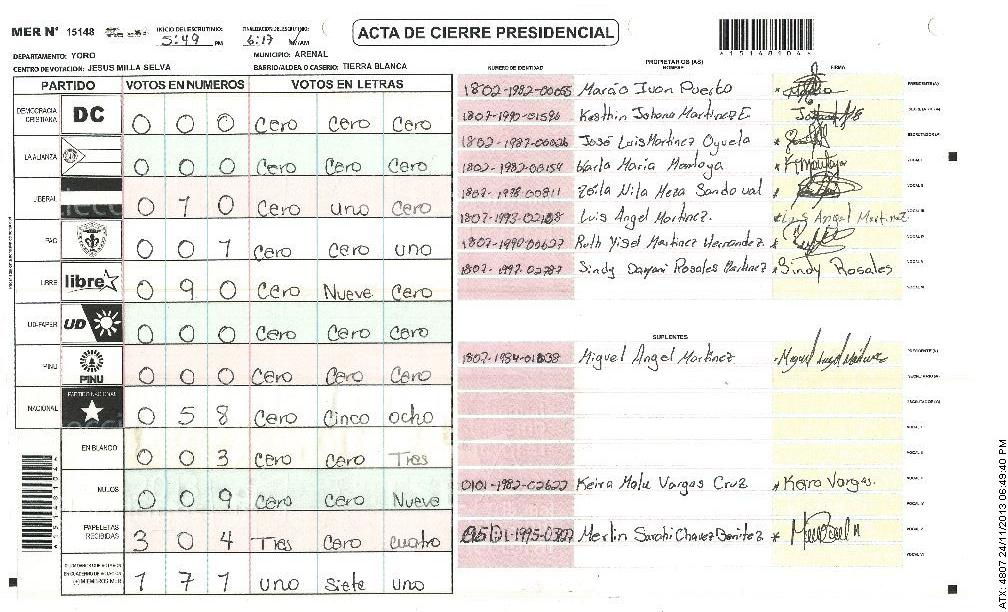 MER Nº 15148 INICIO DEL ESCRUTINIO: 5:49 PM FINALIZACION DEL ESCRUTINIO: 6:17 PM/AM
ACTA DE CIERRE PRESIDENCIAL
*15148404*
DEPARTAMENTO: YORO MUNICIPIO: ARENAL
CENTRO DE VOTACION: JESUS MILLA SELVA BARRIO/ALDEA O CASERIO: TIERRA BLANCA
PARTIDO VOTOS EN NUMEROS VOTOS EN LETRAS
DEMOCRACIA CRISTIANA DC 0 0 0 Cero Cero Cero
LA ALIANZA 0 0 0 Cero Cero Cero
LIBERAL 0 1 0 Cero uno Cero
PAC 0 0 1 Cero cero uno
LIBRE libre 0 9 0 Cero Nueve Cero
UD-FAPER UD 0 0 0 Cero Cero Cero
PINU PINU 0 0 0 Cero Cero Cero
NACIONAL PARTIDO NACIONAL 0 5 8 Cero Cinco ocho
EN BLANCO 0 0 3 Cero Cero Tres
NULOS 0 0 9 Cero Cero Nueve
PAPELETAS RECIBIDAS 3 0 4 Tres Cero cuatro
(+) MIEMBROS MER 1 7 1 uno Siete uno
PROPIETARIOS (AS)
NUMERO DE IDENTIDAD NOMBRE FIRMA
1802-1982-00055 Mario Ivan Puerto PRESIDENTE (A)
1807-1990-01596 Kesthin Johana Martinez E. SECRETARIO (A)
1802-1987-00026 José Luis Martinez Oyuela ESCRUTADOR (A)
1802-1982-00154 Karla Maria Montoya K Montoya VOCAL I
1807-1978-00811 Zoila Nila Meza Sandoval VOCAL II
1807-1993-02168 Luis Angel Martinez. Luis Angel Martinez VOCAL III
1807-1990-00627 Ruth Yisel Martinez Hernandez VOCAL IV
1807-1992-02787 Sindy Dayani Rosales Martinez Sindy Rosales VOCAL V
VOCAL VI
SUPLENTES
1807-1984-01838 Miguel Angel Martinez Miguel Angel Martinez PRESIDENTE (A)
SECRETARIO (A)
ESCRUTADOR (A)
VOCAL I
VOCAL II
0101-1982-02622 Keira Malu Vargas Cruz Keira Vargas. VOCAL III
VOCAL IV
Merlin Sarahi Chavez Benitez VOCAL V
VOCAL VI
ATX: 4807 24/11/2013 06:49:40 PM